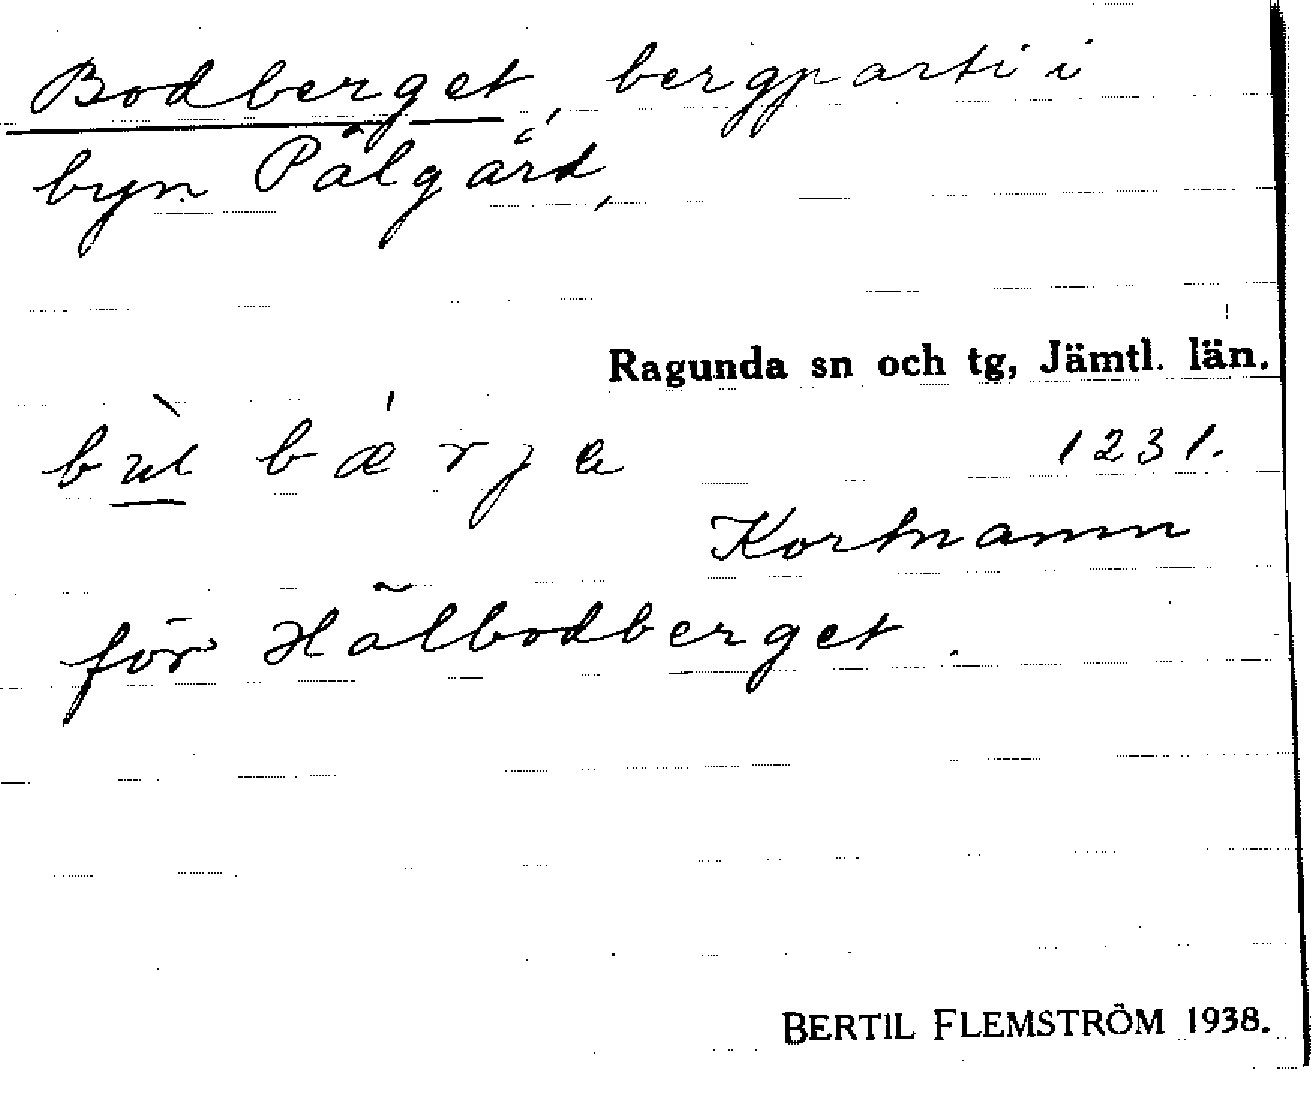 Bodberget, bergparti i
byn Pålgård,
Ragunda sn och tg, Jämtl. län.
bærje 1231.
Kortnamn
för Hålbodberget.
BERTIL FLEMSTRÖM 1938.